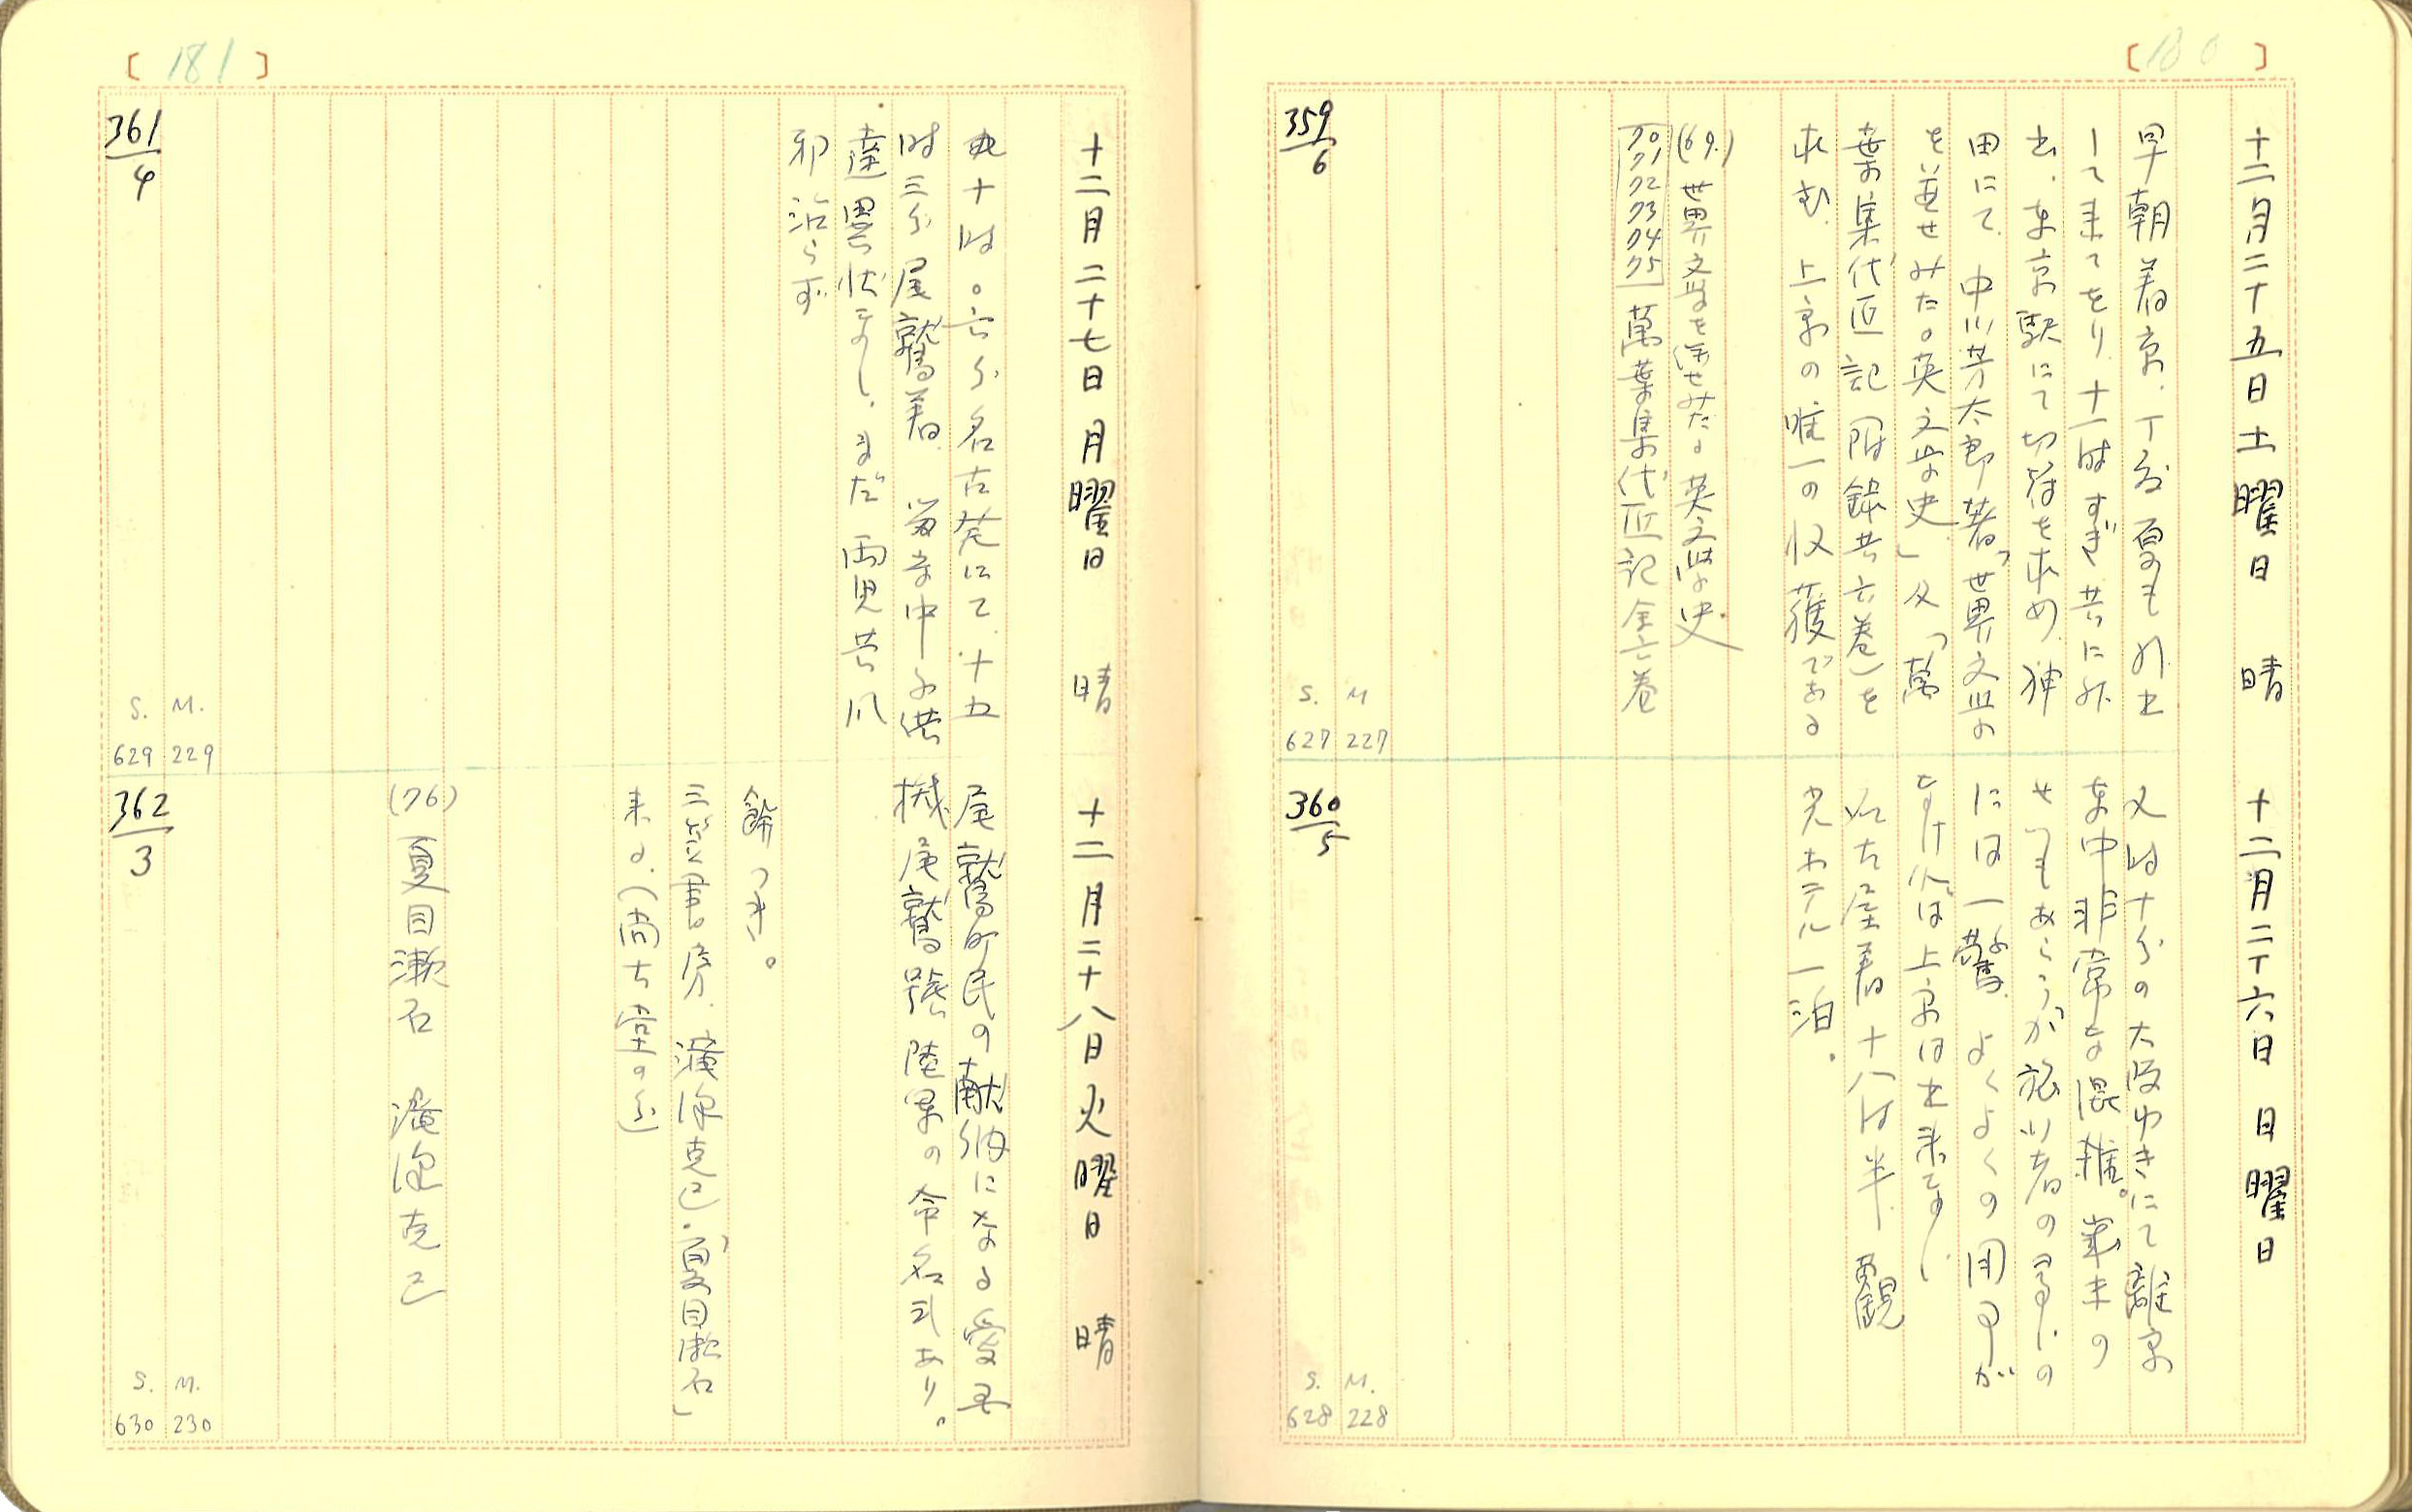 [180]
十二月二十五日 土曜日 晴
早朝着京、丁度夏も外出
して来てをり、十一時すぎ共に外
出、東京駅にて切符を求め、神
田にて、中川芳太郎著、「世界文学
を並せみた。英文学史」及「萬
葉集代匠記(附録共六巻)を
求む、上京の唯一の収獲である
(69.) 世界文学を並せみた。英文学史
70 71 72 73 74 75 萬葉集代匠記 全六巻
359/6
S. M
627 227
十二月二十六日 日曜日
時十分の大阪ゆきにて離京
車中非常な混雑。歳末の
せいもあらうが旅行者の多いの
には一驚、よくよくの用事が
なければ上京は出来ない、
名古屋着十八時半、観
光ホテル一泊。
360/5
S. M.
628 228
[181]
十二月二十七日 月曜日 晴
十時〇六分名古屋にて、十五
時三分尾鷲着、留守中子供
達異状なし、まだ両児共風
邪治らず
361/4
S. M.
629 229
十二月二十八日 火曜日 晴
尾鷲町民の献納になる愛国
機尾鷲号陸軍の命名式あり。
餅つき。
三笠書房、滝沢克己・「夏目漱石」
来る、(尚古堂の分)
(76) 夏目漱石 滝沢克己
362/3
S. M.
630 230